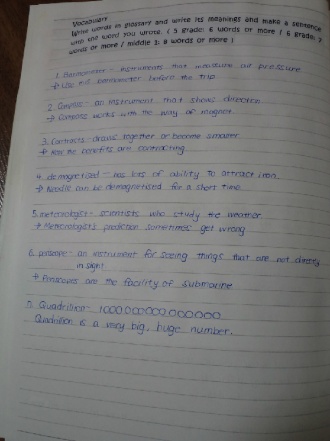 Vocabulary
Write words in glossary and write its meanings and make a sentence
with the word you wrote. ( 5 grade: 6 words or more / 6 grade: 7
words or more / middle 3: 8 words or more )
1. Barometer - instruments that measure air pressure
→ Use this barometer before the trip
2. Compass - an instrument that shows direction
→ Compass works with the way of magnet.
3. Contracts - draws together or become smaller
→ the benefits are contracting
4. demagnetised - has loss of ability to attract iron.
→ Needle can be demagnetised for a short time.
5. meteorologist - scientists who study the weather
→ Meteorologist's prediction sometimes get wrong
6. periscope - an instrument for seeing things that are not directly
in sight
→ Periscopes are the facility of submarine
7. Quadrillion -
Quadrillion is a very big, huge number.